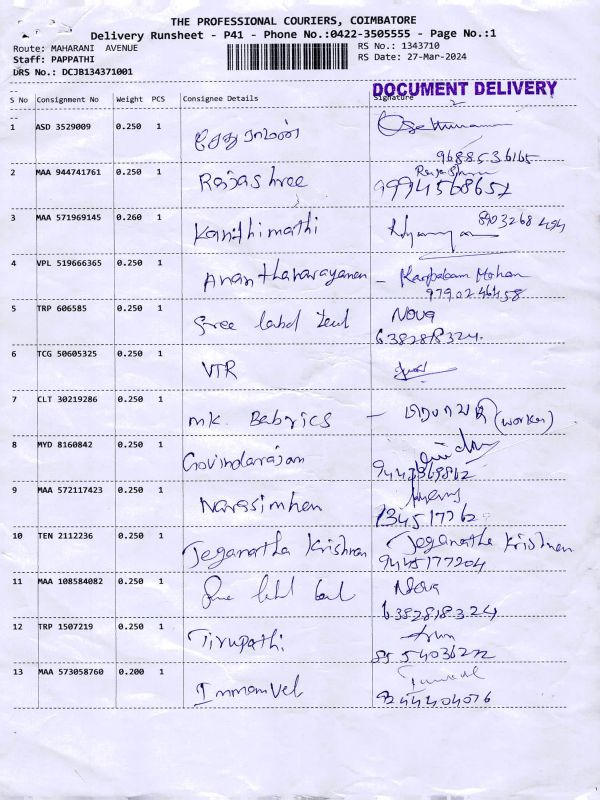 THE PROFESSIONAL COURIERS, COIMBATORE
Delivery Runsheet - P41 - Phone No.:0422-3505555 - Page No.:1
Route: MAHARANI AVENUE
Staff: PAPPATHI
DRS No.: DCJB134371001
RS No.: 1343710
RS Date: 27-Mar-2024
DOCUMENT DELIVERY
S No Consignment No Weight PCS Consignee Details Signature
1 ASD 3529009 0.250 1 சேதுராமன்
9688536165
2 MAA 944741761 0.250 1 Rajashree Rajashree
9994568657
3 MAA 571969145 0.260 1 Kanthimathi 8903268494
4 VPL 519666365 0.250 1 Ananthanarayanan - Karpagam Mohan
9790246458
5 TRP 606585 0.250 1 Free label Nova
6382818324
6 TCG 50605325 0.250 1 VTR
7 CLT 30219286 0.250 1 MK. Babrics - (worker)
8 MYD 8160842 0.250 1 Govindarajan
9 MAA 572117423 0.250 1 Narasimhen
10 TEN 2112236 0.250 1 Jeganatha Krishnan Jeganatha Krishnan
9445177204
11 MAA 108584082 0.250 1 Nova
6382818324
12 TRP 1507219 0.250 1 Tirupathi
13 MAA 573058760 0.200 1 Immanvel
9244404076